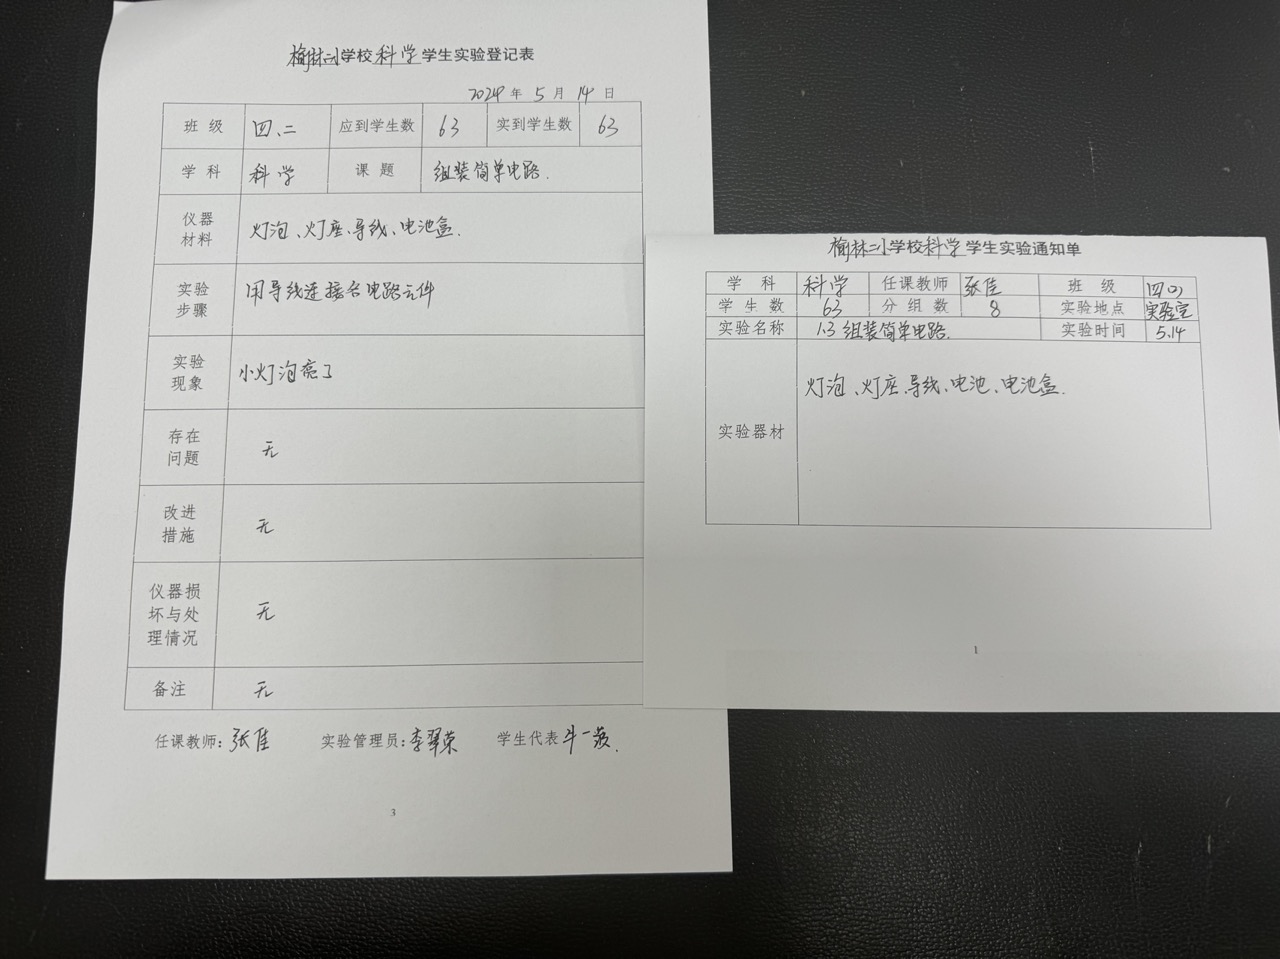 榆林二小学校科学学生实验登记表
2024年5月14日
班级 四、二 应到学生数 63 实到学生数 63
学科 科学 课题 组装简单电路.
仪器材料 灯泡、灯座、导线、电池盒.
实验步骤 用导线连接各电路元件
实验现象 小灯泡亮了
存在问题 无
改进措施 无
仪器损坏与处理情况 无
备注 无
任课教师：张佳 实验管理员：李翠荣 学生代表 牛一菠.
3
榆林二小学校科学学生实验通知单
学科 科学 任课教师 张佳 班级 四(2)
学生数 63 分组数 8 实验地点 实验室
实验名称 1.3 组装简单电路. 实验时间 5.14
实验器材 灯泡、灯座、导线、电池、电池盒.
1